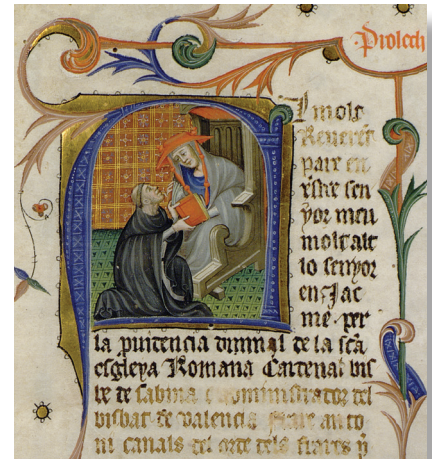 Prolech
l molt
Reuerēt
pare en
xp̄ist sen
yor meu
molt alt
lo senyor
en Jac
me. per
la prouidencia diuinal de la scā
esgleya Romana Cardenal bis
be de sabina e aministrador del
bisbat de valencia frare anto
ni canals del orde dels frares